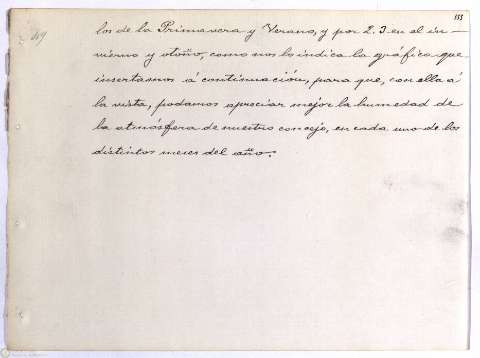 133
49
los de la Primavera y Verano, y por 2.3 en el in-
vierno y otoño, como nos lo indica la gráfica que
insertamos á continuación, para que, con ella á
la vista, podamos apreciar mejor la humedad de
la atmósfera de nuestro concejo, en cada uno de los
distintos meses del año.